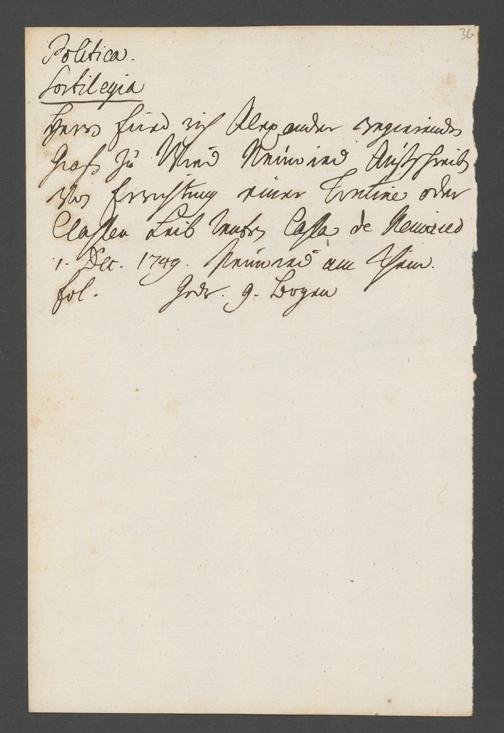 36
Politica.
Sortilegia
Alexander regierender
Graf zu Wied Neuwied Ausschreib
Errichtung einer Tontine oder
Classen Leib Renten Cassa de Neuwied
1. Dec. 1749. Neuwied am Rhein.
fol. 9. Bogen